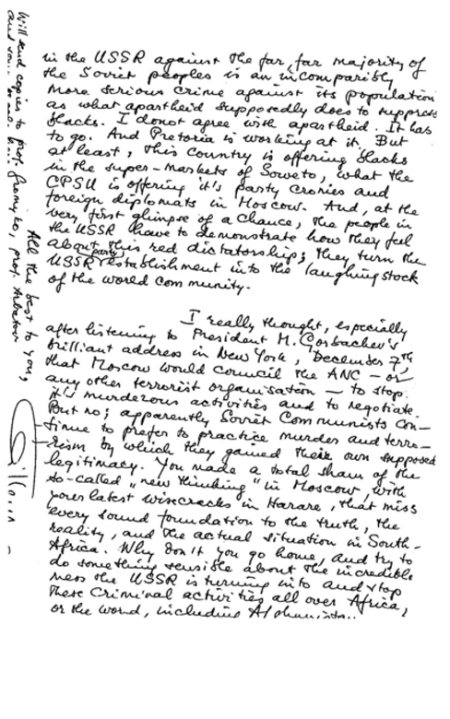 in the USSR against the far, far majority of
the Soviet peoples is an incomparibly
more serious crime against its population
as what apartheid supposedly does to suppress
blacks. I do not agree with apartheid. It has
to go. And Pretoria is working at it. But
at least, this country is offering blacks
in the super-markets of Soweto, what the
CPSU is offering it's party cronies and
foreign diplomats in Moscow. And, at the
very first glimpse of a chance, the people in
the USSR have to demonstrate how they feel
about this red dictatorship; they turn the
USSR party establishment into the laughing stock
of the world community.
I really thought, especially
after listening to President M. Gorbachev's
brilliant address in New York, December 7th,
that Moscow would council the ANC – or
any other terrorist organisation – to stop
it's murderous activities and to negotiate.
But no; apparently Soviet Communists con-
tinue to prefer to practice murder and terro-
rism by which they gained their own supposed
legitimacy. You made a total sham of the
so-called „new thinking" in Moscow, with
your latest wincracks in Harare, that miss
every sound foundation to the truth, the
reality, and the actual situation in South-
Africa. Why don't you go home, and try to
do something sensible about the incredible
mess the USSR is turning into and stop
these criminal activities all over Africa,
or the world, including
All the best to you,
Will send copies to prof. Gromyko, prof. Arbatov
and